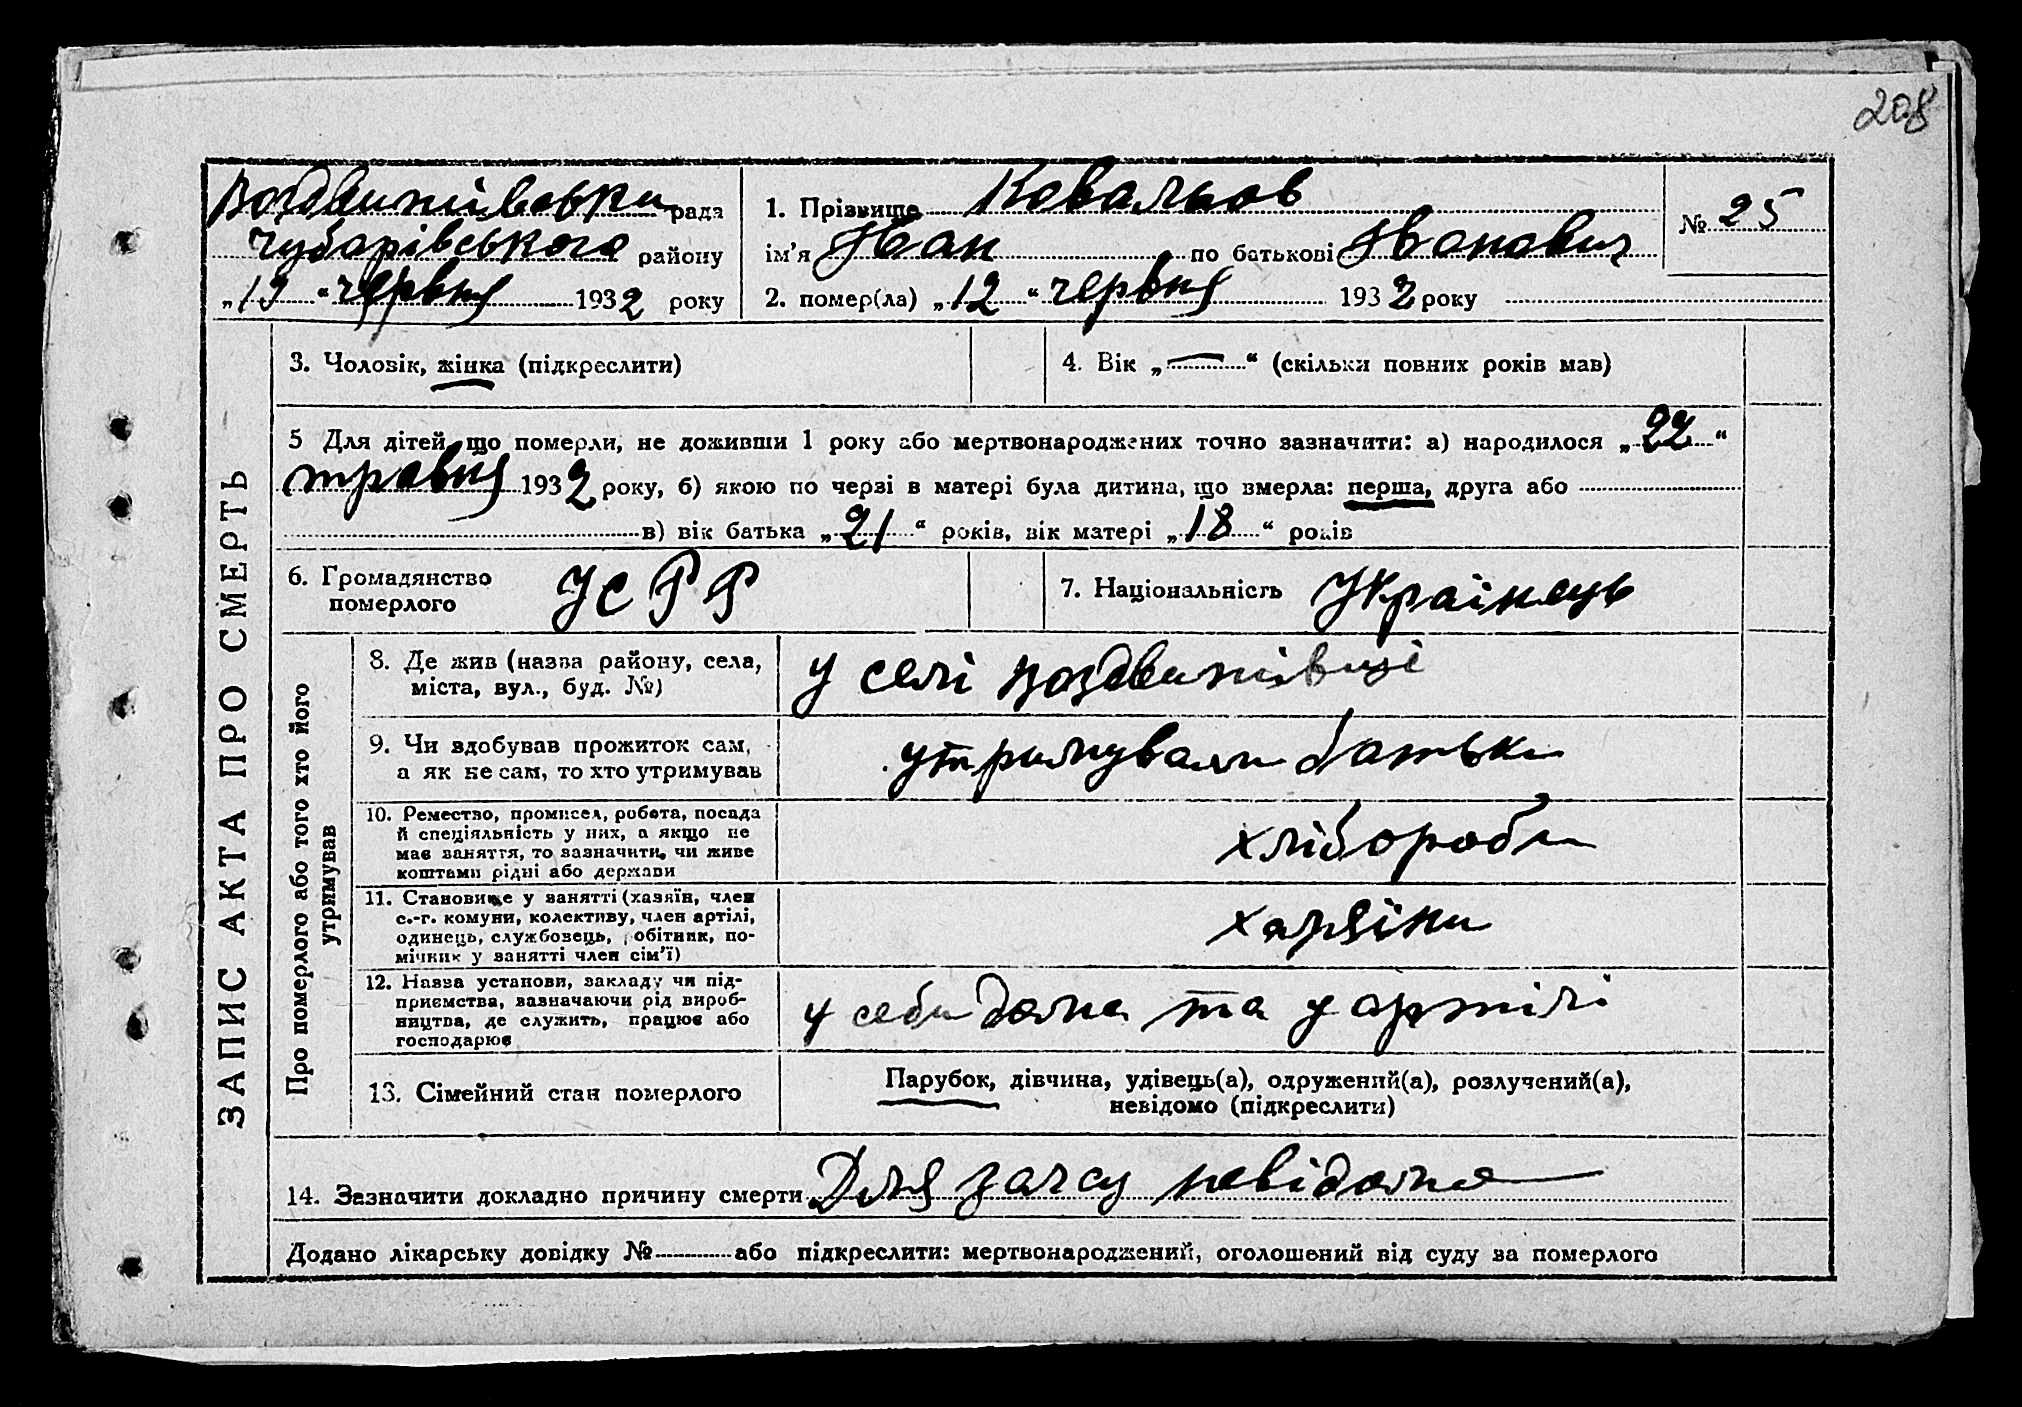 208
Воздвижівська рада
Чубарівського району
„13“ червня 1932 року
1. Прізвище Ковальов
ім’я Іван по батькові Іванович
№ 25
2. помер(ла) „12“ червня 1932 року
ЗАПИС АКТА ПРО СМЕРТЬ
3. Чоловік, жінка (підкреслити)
4. Вік „—“ (скільки повних років мав)
5 Для дітей, що померли, не доживши 1 року або мертвонароджених точно зазначити: а) народилося „22“
травня 1932 року, б) якою по черзі в матері була дитина, що вмерла: перша, друга або
в) вік батька „21“ років, вік матері „18“ років
6. Громадянство
померлого
УСРР
7. Національність Українець
Про померлого або того хто його
утримував
8. Де жив (назва району, села,
міста, вул., буд. №)
у селі Воздвижівці
9. Чи здобував прожиток сам,
а як не сам, то хто утримував
утримували батьки
10. Ремество, промисел, робота, посада
й спеціяльність у них, а якщо не
має заняття, то зазначити, чи живе
коштами рідні або держави
хлібороби
11. Становище у занятті (хазяїн, член
с.-г. комуни, колективу, член артілі,
одинець, службовець, робітник, по-
мічник у занятті член сім’ї)
хазяїни
12. Назва установи, закладу чи під-
приємства, зазначаючи рід вироб-
ництва, де служить, працює або
господарює
у себи дома та у артілі
13. Сімейний стан померлого
Парубок, дівчина, удівець(а), одружений(а), розлучений(а),
невідомо (підкреслити)
14. Зазначити докладно причину смерти Для загсу невідома
Додано лікарську довідку № або підкреслити: мертвонароджений, оголошений від суду за померлого